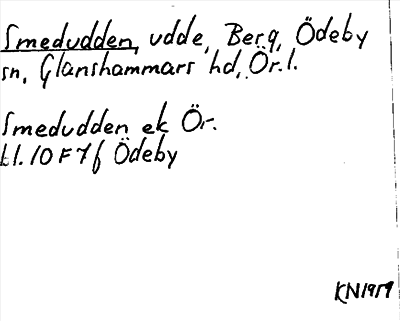 Smedudden, udde, Berg, Ödeby
sn, Glanshammars hd, Ör. l.
Smedudden ek Ör.
bl. 10 F 7 f Ödeby
KN 1959